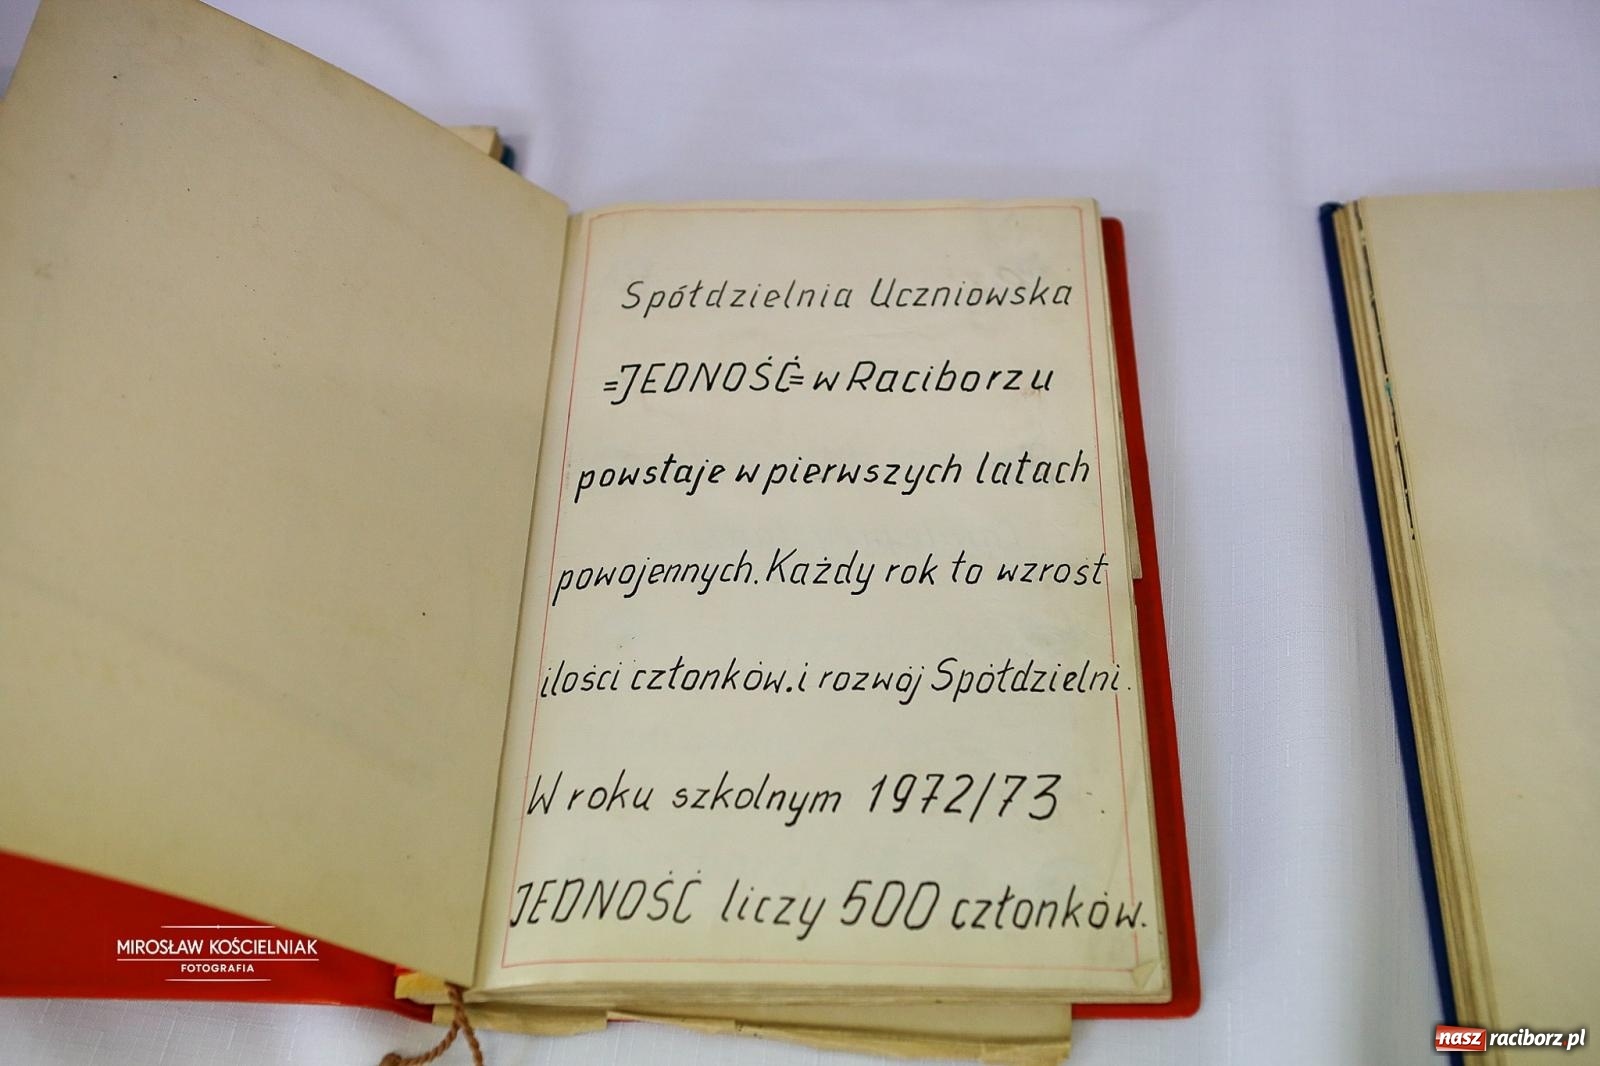 Spółdzielnia Uczniowska
=JEDNOŚĆ= w Raciborzu
powstaje w pierwszych latach
powojennych. Każdy rok to wzrost
ilości członków. i rozwój Spółdzielni.
W roku szkolnym 1972/73
JEDNOŚĆ liczy 500 członków.
MIROSŁAW KOŚCIELNIAK
FOTOGRAFIA
nasz raciborz.pl